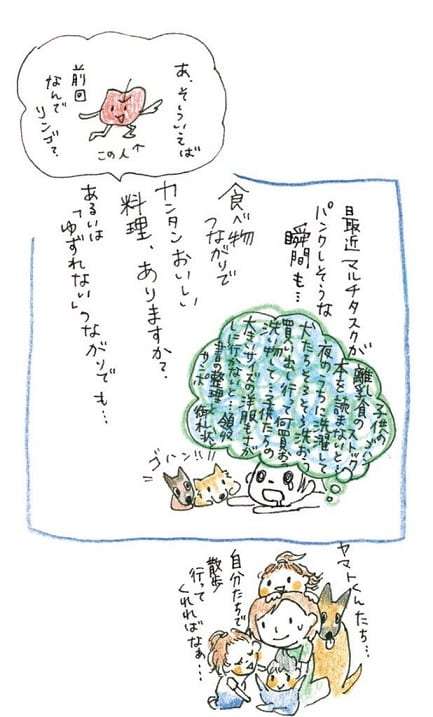 あ、そういえば
前回
なんで
リンゴ？
この人↑
最近マルチタスクが
パンクしそうな
瞬間も…
子供の
離乳食のストック
本を読まないと…
夜のうちに洗濯して
犬たちもそろそろ洗お
買い出し行って何買お
洗い物して…子供たちの
大きいサイズの洋服もさが
しに行かないと…領収
書の整理
御礼状
食べ物
つながりで
カンタンおいしい
料理、ありますか？
あるいは
「ゆずれない」つながりでも…
ゴハン!!
ヤマトくんたち…
自分たちで
散歩
行って
くれればなぁ…